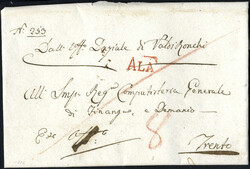 N. 253
Dall' Off. Daziale di Valsi Ronchi
ALA
All' Imp. Reg. Computisteria Generale
di Finanza, e Demanio
Ex Off.
8
Trento